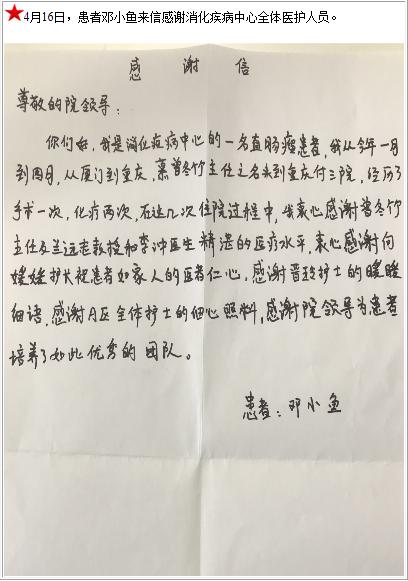 ★4月16日，患者邓小鱼来信感谢消化疾病中心全体医护人员。
感 谢 信
尊敬的院领导：
你们好，我是消化疾病中心的一名直肠癌患者，我从今年一月
到四月，从厦门到重庆，慕曾冬竹主任之名来到重庆付三院，经历了
手术一次，化疗两次，在这几次住院过程中，我衷心感谢曾冬竹
主任及兰远志教授和李冲医生精湛的医疗水平，衷心感谢向
媛媛护长视患者如家人的医者仁心，感谢晋 护士的暖暖
细语，感谢A区全体护士的细心照料，感谢院领导为患者
培养了如此优秀的团队。
患者：邓小鱼